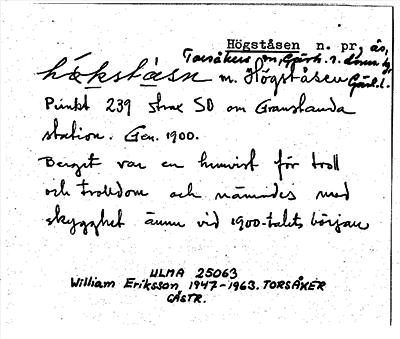 Högståsen n. pr, ås,
Torsåkers sn, Gästr.
hö̀kstàsn m. Högståsen Gästr. l.
Punkt 239 strax SO om Granstanda
station. Gen. 1900.
Berget var en hemvist för troll
och trolldom och nämndes med
skygghet ännu vid 1900-talets början
ULMA 25063
William Eriksson 1947-1963. TORSÅKER
GÄSTR.